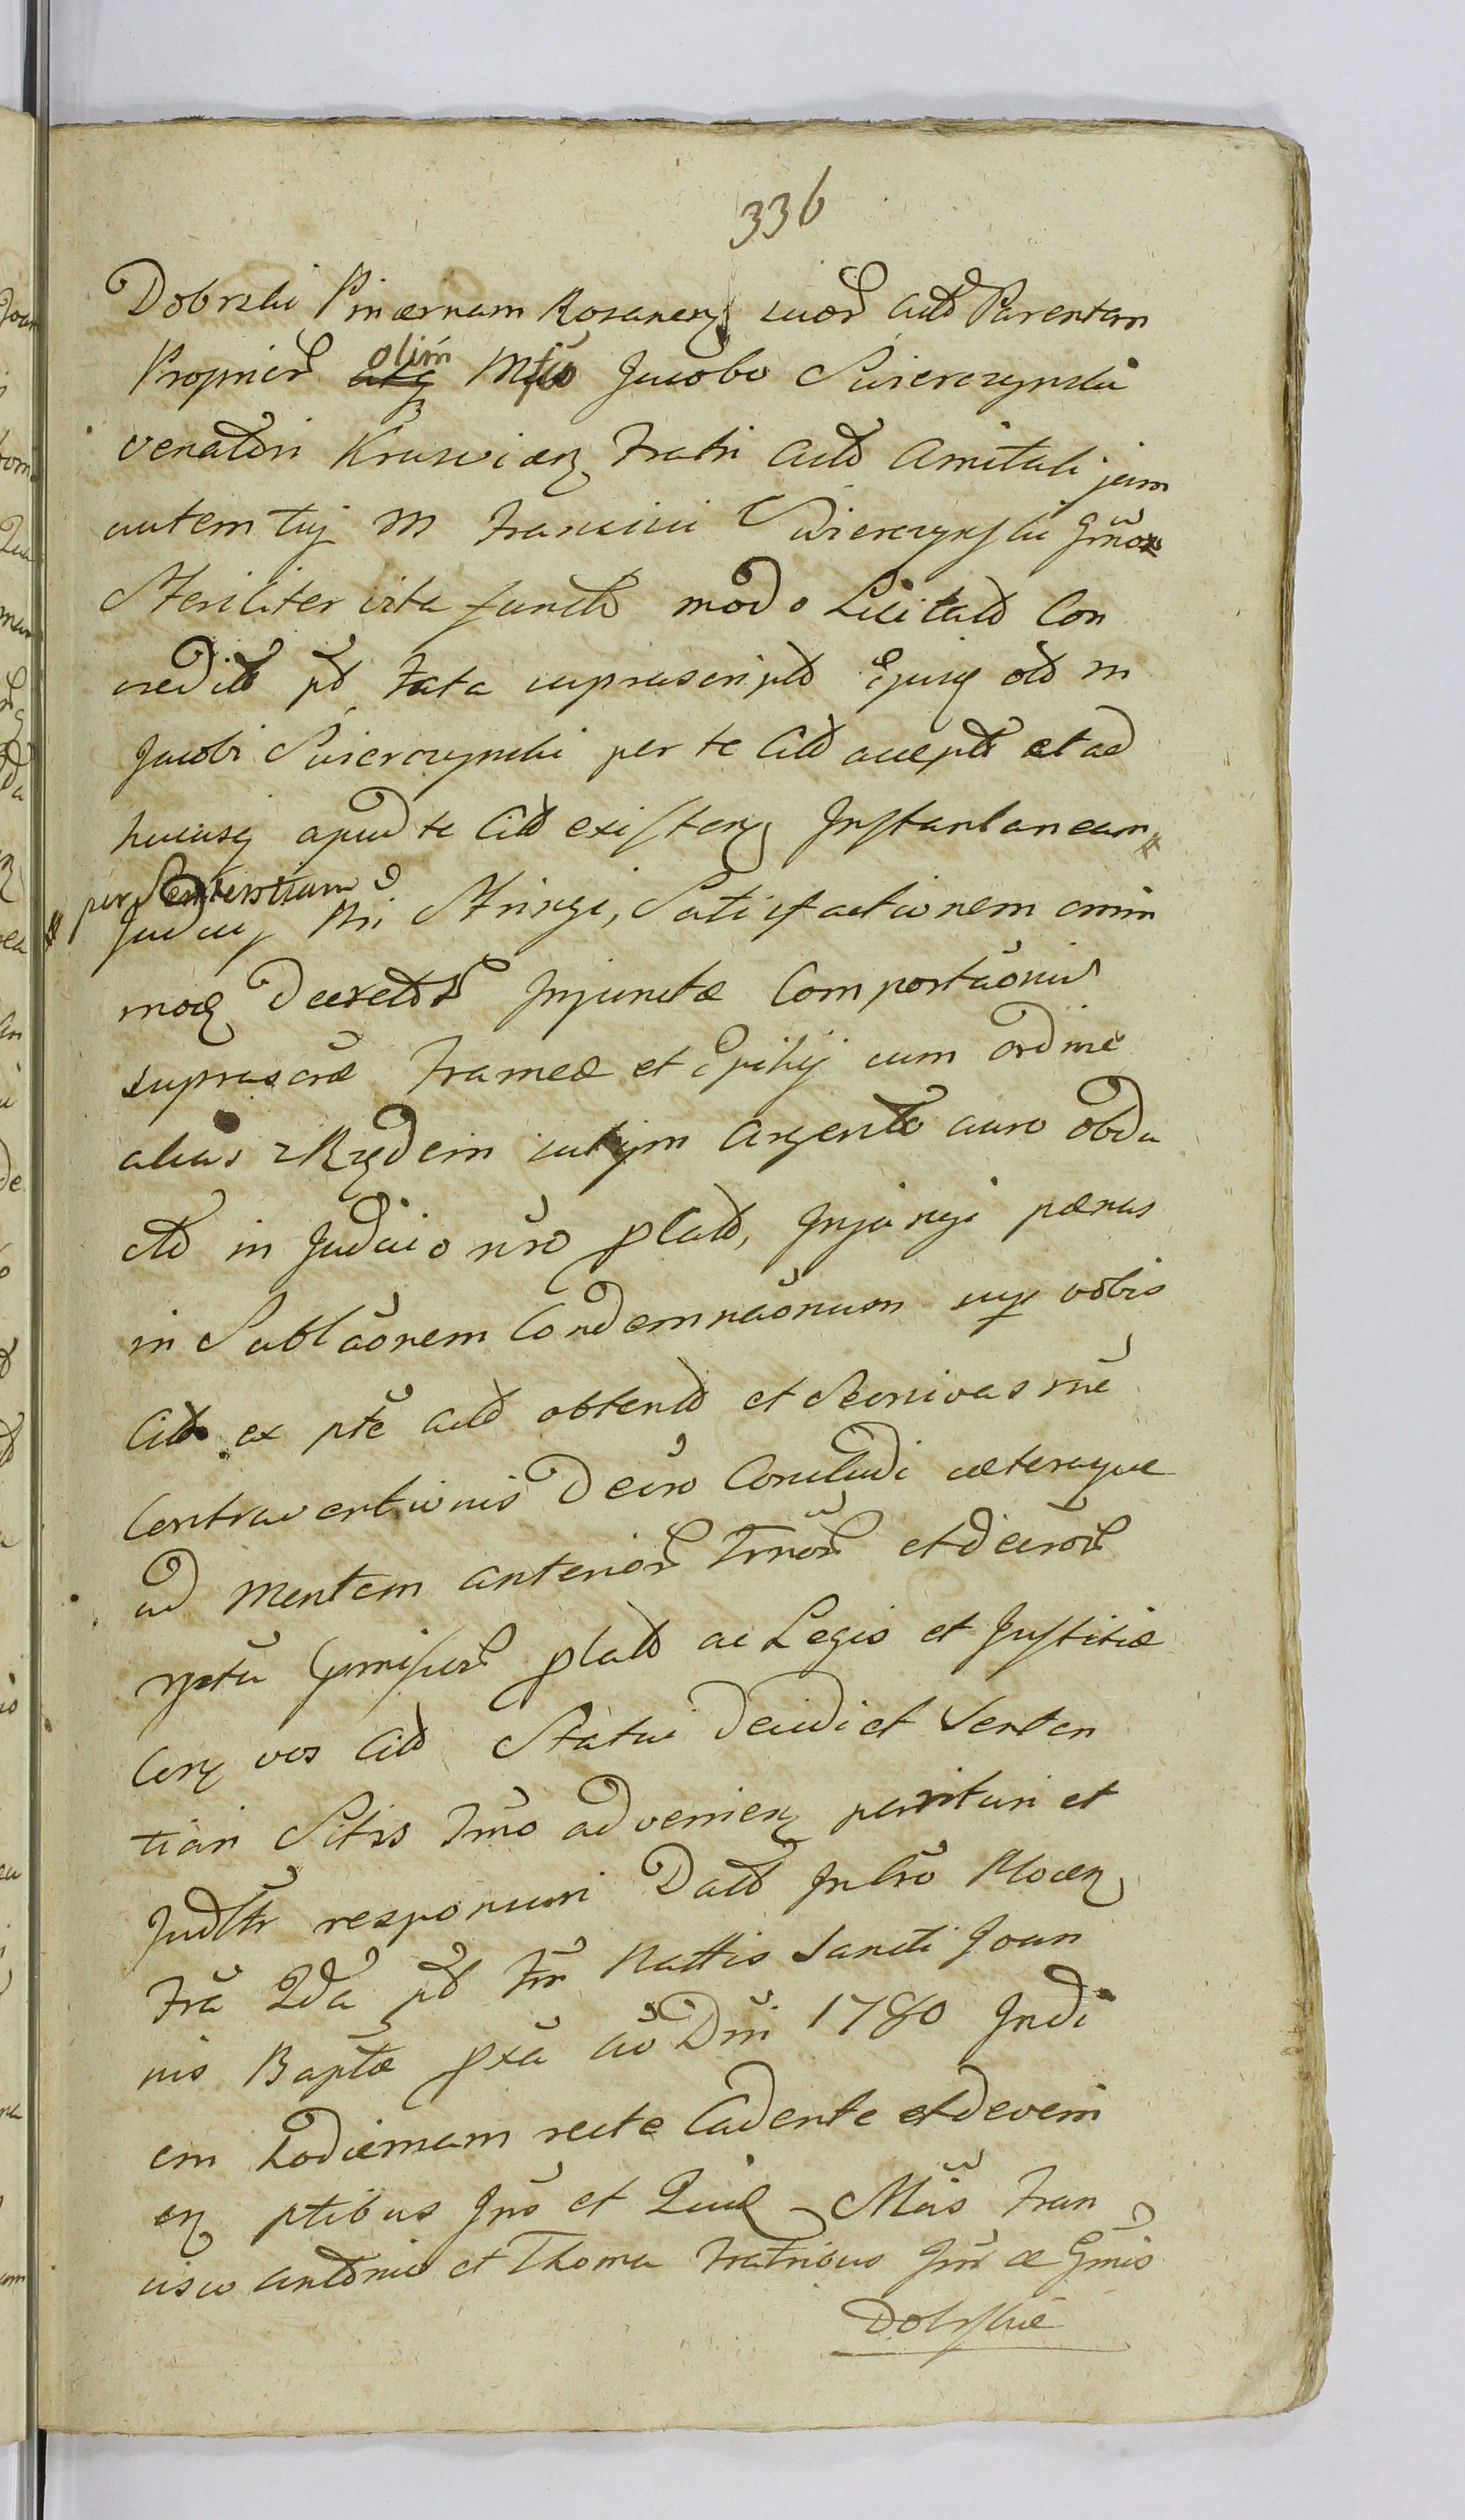 336
Dobrski Pincernam Rozanen suor Actd Parentem
Proprior olim Mfco Jacobo Swierczynski
Venatori Kruswicen Fratri Actd Amitali jam
autem tuj M Francisci Swierczynski Gnor
Steriliter vita functo modo Licitato Con
credito pt Fata suprascripto Ejusq old M
Jacobi Swierczynski per te Citd accepto et ad
hucusq apud te Citd existen Instantaneam
per Sententiam
Judicij Nri Stringi, Satisfactionem omni
moq Decretor Injuncta Comportaonis
suprascrae Frameae et Epihij cum ordine
alias z Rzędem cutym Argento auro obdu
cto in Judicio nro ptato, Injungi paenas
in Sublaonem Condemnaonum sup vobis
Citd ex pte Actd obtento et Seonivas me
Contraventionis Decro Concludi caeteraque
ad Mentem anterior Trnor et decror
rptu praemissor ptato ac Legis et Justitiae
Cen vos Citd Statui decidi et Senten
tiari Sitis Trno advenien parituri et
Judltr responsuri Datd In Cro Plocen
Fra 2da pt Fm Nattis Sancti Joan
nis Baptae pxa Ao Dni 1780 Indi
em hodiernam recte Cadente et deveni
en ptibus Ipso et Quid Mcis Fran
cisco Antonio et Thoma Fratribus Grm ae Gnis
Dobrskie